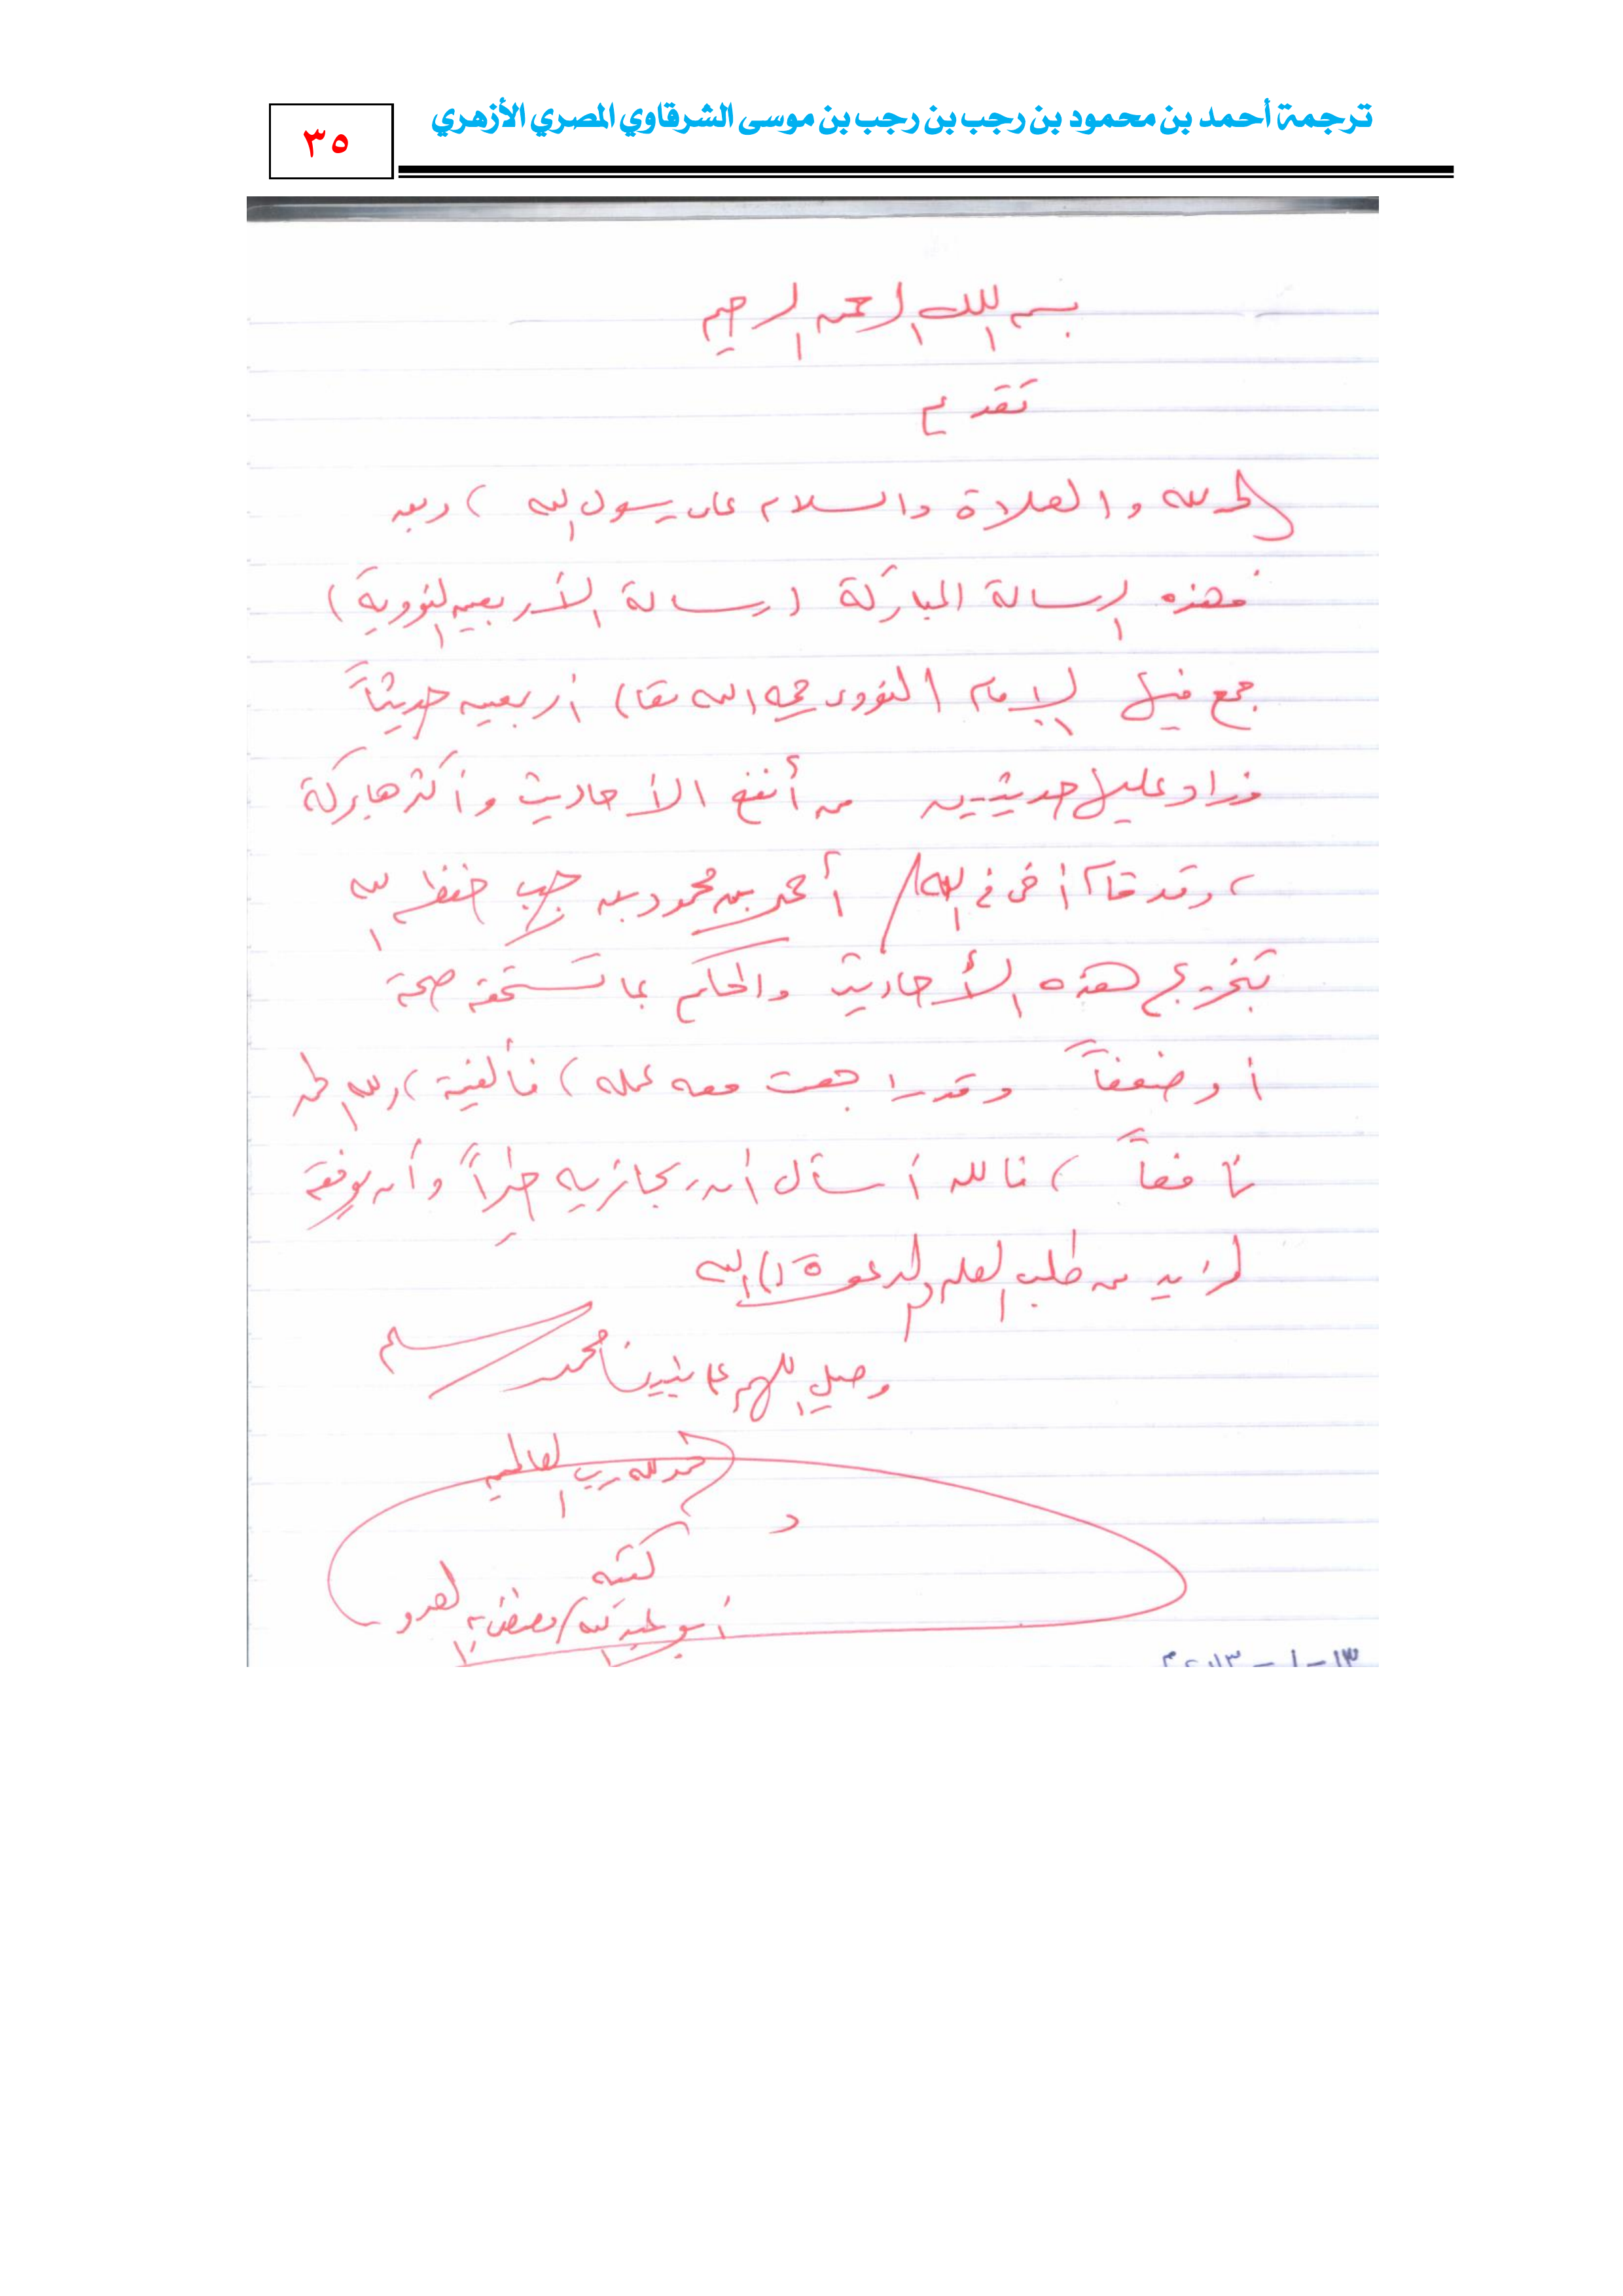 ترجمة أحمد بن محمود بن رجب بن رجب بن موسى الشرقاوي المصري الأزهري
٣٥
بسم الله الرحمن الرحيم
تقديم
الحمد لله والصلاة والسلام على رسول الله، وبعد
فهذه الرسالة المباركة (رسالة الأربعين النووية)
جمع فيها الإمام النووي رحمه الله تعالى أربعين حديثاً
وزاد عليها حديثين من أنفع الأحاديث وأكثرها بركة
، وقد قام أخي في الله / أحمد بن محمود بن رجب حفظه الله
بتخريج هذه الأحاديث والحكم بما تستحقه صحة
أو ضعفاً وقد راجعت معه عمله، فألفيته، ولله الحمد
نافعاً، فالله أسأل أن يجازيه خيراً وأن يوفقه
لمزيد من طلب العلم والدعوة إلى الله
وصلى اللهم على نبينا محمد وسلم
والحمد لله رب العالمين
كتبه
أبو عبد الله / مصطفى بن العدوي
١٣-١-٢٠١٣م